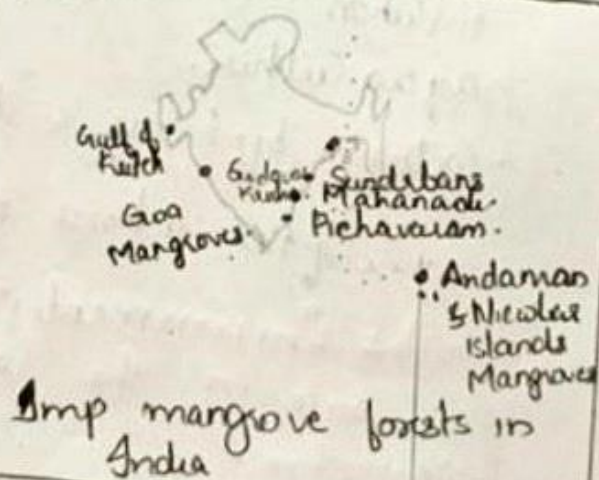 Gulf of
Kutch
Goa
Mangroves.
Sundarbans
Mahanadi.
Pichavaram.
Andaman
& Nicobar
islands
Mangroves
Imp mangrove forests in
India